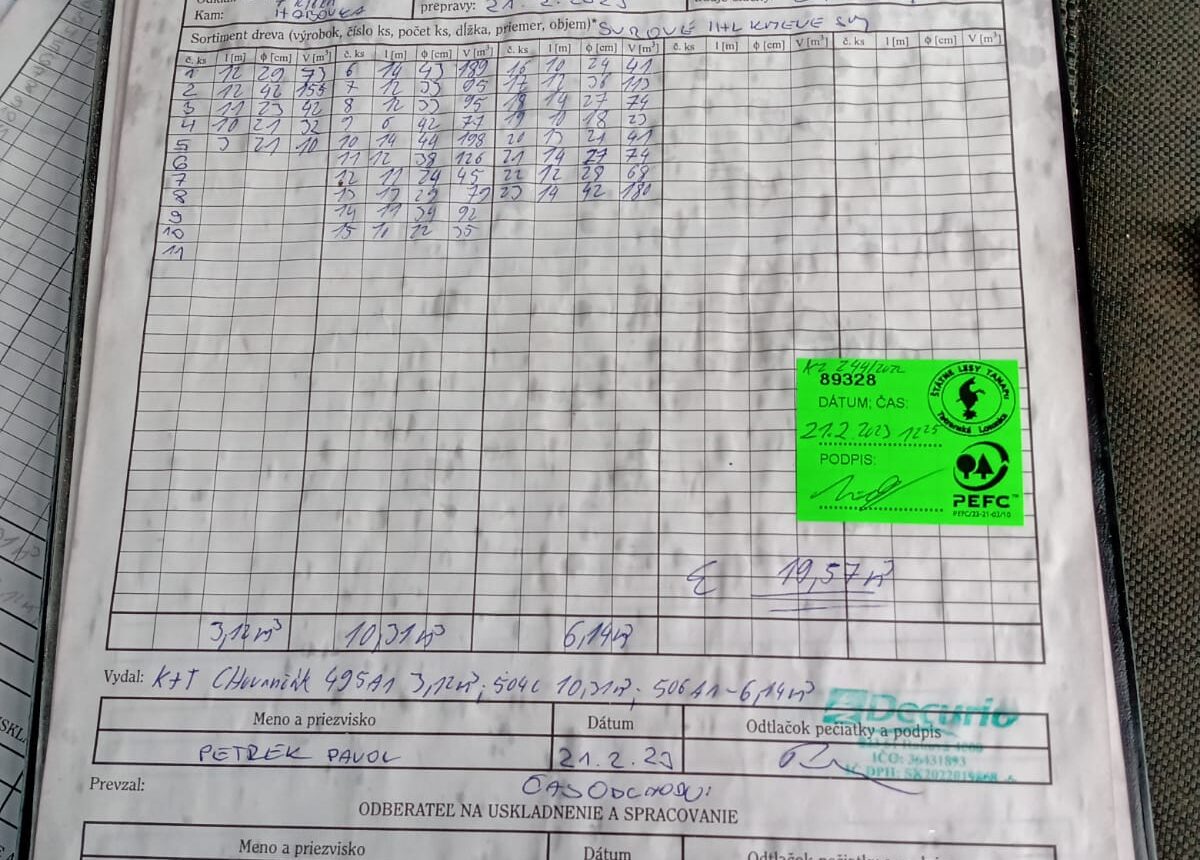 Kam: HORSOVKA
prepravy: 21. 2. 2023
Sortiment dreva (výrobok, číslo ks, počet ks, dĺžka, priemer, objem)* SUROVÉ KMEVE
č. ks l [m] ϕ [cm] V [m³] č. ks l [m] ϕ [cm] V [m³] č. ks l [m] ϕ [cm] V [m³] č. ks l [m] ϕ [cm] V [m³] č. ks l [m] ϕ [cm] V [m³]
1 12 29 73 6 14 43 189 16 10 24 41
2 12 42 155 7 12 33 95 17 12 36 113
3 11 23 42 8 12 33 95 18 14 27 74
4 10 21 32 9 6 42 77 19 10 18 23
5 3 21 10 10 14 44 198 20 13 21 41
6 11 12 38 126 21 14 27 74
7 12 11 24 45 22 12 28 68
8 13 13 29 79 23 14 42 180
9 14 11 34 92
10 15 11 22 35
11
KZ 244/2022
89328
DÁTUM; ČAS:
21.2.2023 12 25
PODPIS:
ŠTÁTNE LESY TANAPu
Tatranská Lomnica
PEFC™
PEFC/23-21-02/10
Σ 19,57 m³
3,12 m³ 10,31 m³ 6,14 m³
Vydal: K+T 495A1 3,12m³; 504c 10,31m³; 506A1 - 6,14m³
Decurio
Meno a priezvisko Dátum Odtlačok pečiatky a podpis
PETREK PAVOL 21.2.23
IČO: 36431893
Prevzal: ČAS ODCHODU:
ODBERATEĽ NA USKLADNENIE A SPRACOVANIE
Meno a priezvisko Dátum Odtlačok pečiatky a podpis